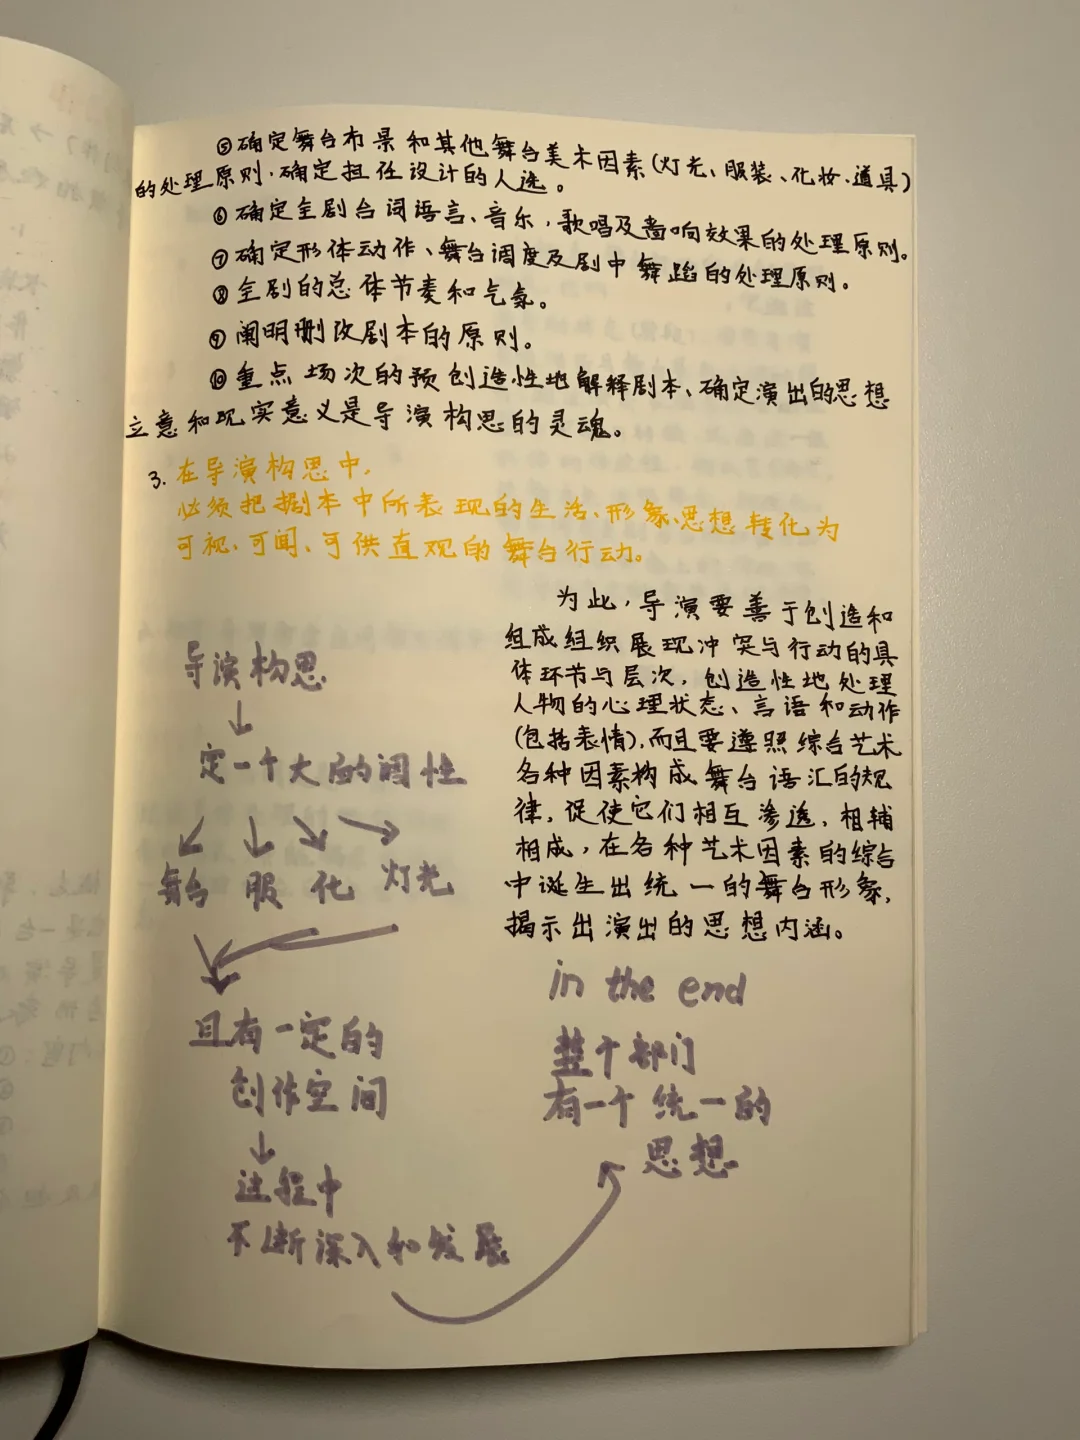 ⑤确定舞台布景和其他舞台美术因素(灯光、服装、化妆、道具)
的处理原则、确定担任设计的人选。
⑥确定全剧台词语言、音乐、歌唱及音响效果的处理原则。
⑦确定形体动作、舞台调度及剧中舞蹈的处理原则。
⑧全剧的总体节奏和气氛。
⑨阐明删改剧本的原则。
⑩重点场次的预创造性地解释剧本、确定演出的思想
立意和现实意义是导演构思的灵魂。
3.在导演构思中,
必须把剧本中所表现的生活、形象、思想转化为
可视、可闻、可供直观的舞台行动。
为此,导演要善于创造和
组成组织展现冲突与行动的具
体环节与层次,创造性地处理
人物的心理状态、言语和动作
(包括表情),而且要遵照综合艺术
各种因素构成舞台语汇的规
律,促使它们相互渗透,相辅
相成,在各种艺术因素的综合
中诞生出统一的舞台形象,
揭示出演出的思想内涵。
导演构思
↓
定一个大的调性
舞台 服 化 灯光
且有一定的
创作空间
↓
过程中
不断深入和发展
in the end
整个部门
有一个统一的
思想